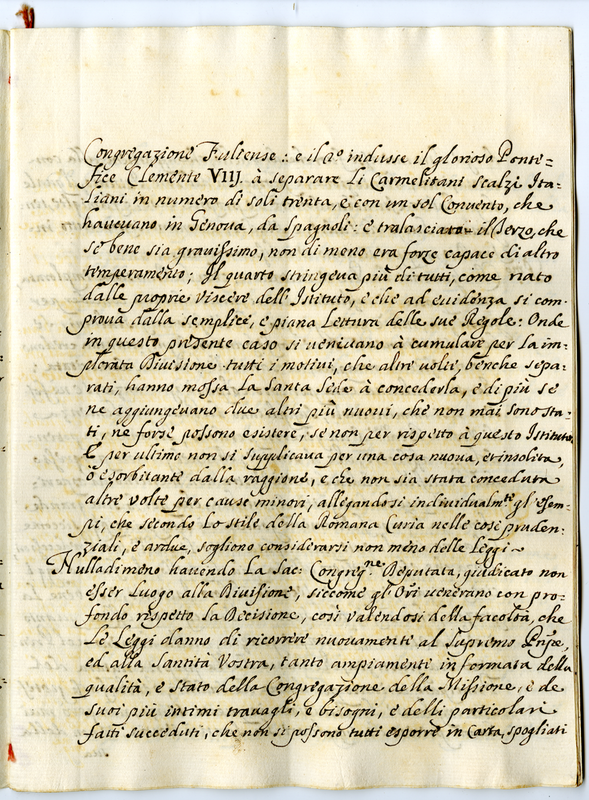 Congregazione Fuliense: e il 2º indusse il glorioso Ponte=
fice Clemente VIII. à separare li Carmelitani scalzi Ita-
liani in numero di soli trenta, e con un sol Convento, che
havevano in Genova, da Spagnoli: e tralasciato il Terzo, che
se bene sia gravissimo, non di meno era forze capace di altro
temperamento; Il quarto stringeva più di tutti, come nato
dalle proprie viscere dell'Istituto, e che ad evidenza si com-
prova dalla semplice, e piana Lettura delle sue Regole: Onde
in questo presente caso si venivano à cumulare per la im-
plorata Divisione tutti i motivi, che altre volte, benche sepa-
rati, hanno mossa la Santa Sede à concederla, e di più se
ne aggiungevano due altri più nuovi, che non mai sono sta-
ti, ne forse possono esistere, se non per rispetto à questo Istituto
E per ultimo non si supplicava per una cosa nuova, et insolita,
ò esorbitante dalla raggione, e che non sia stata conceduta
altre volte per cause minori, allegandosi individualmte gl'essem-
pi, che secondo lo stile della Romana Curia nelle cose pruden-
ziali, e ardue, sogliono considerarsi non meno delle Leggi~
Nulladimeno havendo la Sac: Congregne Deputata, giudicato non
esser luogo alla Divisione, siccome gl'Ori venerano con pro-
fondo respetto la Decisione, così valendosi della facoltà, che
le Leggi danno di ricorrere nuovamente al Supremo Pnpe,
ed alla Santità Vostra, tanto ampiamente informata della
qualità, e stato della Congregazione della Missione, e de
suoi più intimi travagli, e bisogni, e delli particolari
fatti succeduti, che non si possono tutti esporre in Carta, spogliati